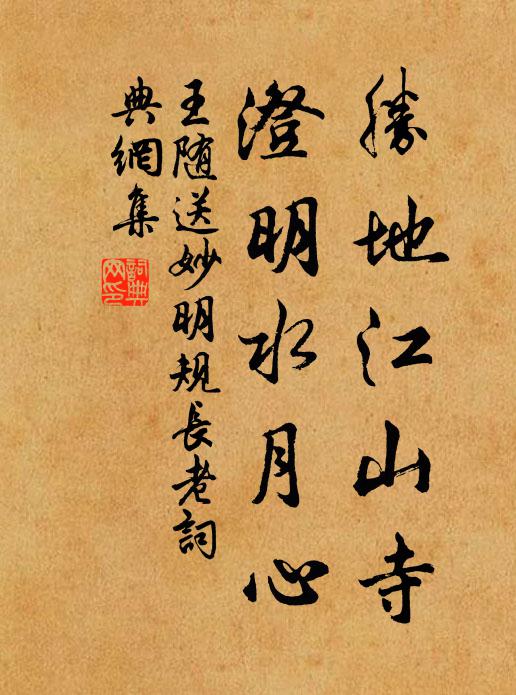 勝地江山寺
澄明水月心
王随送妙明規長老詞
典網集
詞典
网印